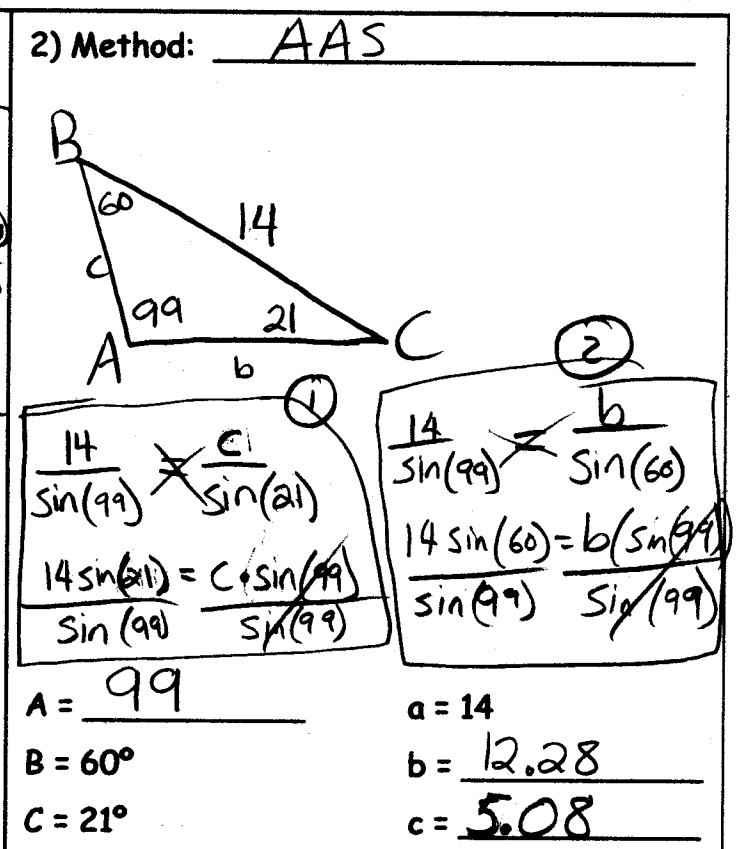 2) Method: AAS
B
60
14
c
99
21
A
b
C
1
14/sin(99) = c/sin(21)
14 sin(21) = c • sin(99)
sin(99) sin(99)
2
14/sin(99) = b/sin(60)
14 sin(60) = b(sin(99))
sin(99) sin(99)
A = 99
a = 14
B = 60°
b = 12.28
C = 21°
c = 5.08